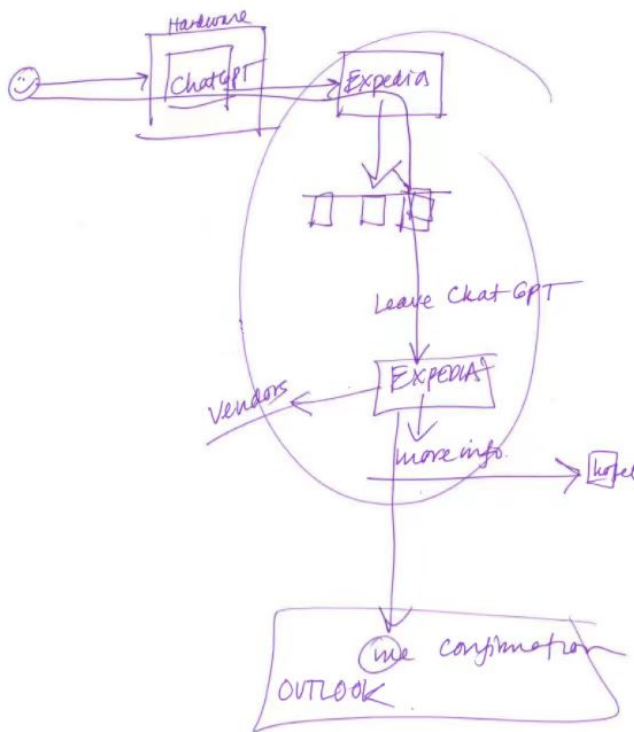 Hardware
ChatGPT
Expedia
Leave Chat GPT
EXPEDIA
vendors
more info.
hotel
me confirmation
OUTLOOK